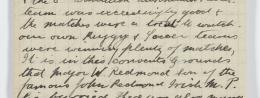 team was exceedingly good &
the matches were a treat to watch
our own Rugger & Soccer teams
were winning plenty of matches,
It is in this convents grounds
that Major W. Redmond son of the
famous John Redmond Irish M.P.